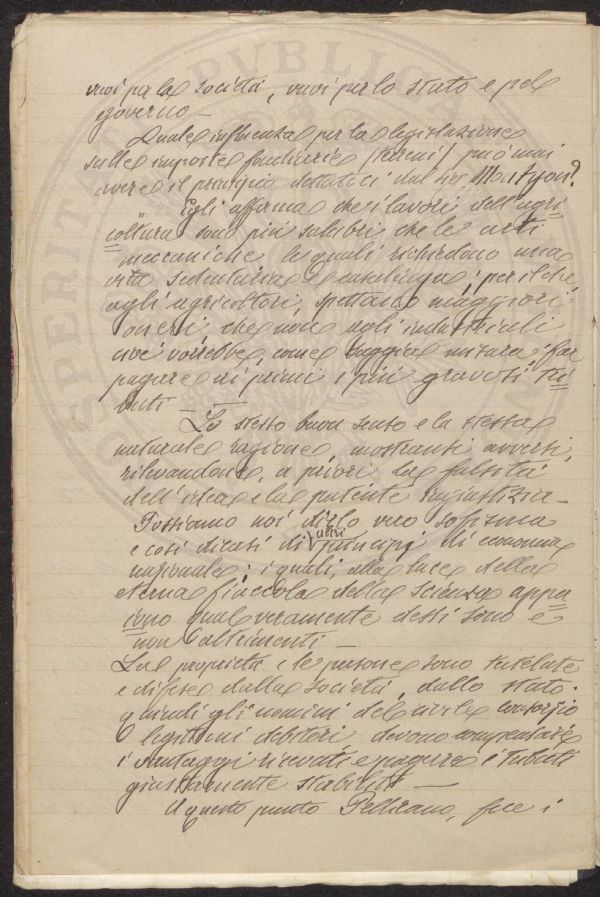 vuoi per la società, vuoi per lo stato e pel
governo —
Quale influenza per la legislazione
sulle imposte fondiarie (terreni) può mai
avere il principio dettatoci dal sig. Montyon?
Egli afferma che i lavori dell'agri
coltura sono più salubri che le arti
meccaniche le quali richiedono una
vita sedentaria e casalinga; per il chè,
agli agricoltori, spettano maggiori
oneri che non agli industriali
cioè vorrebbe, come saggia misura far
pagare ai primi i più gravosi tri
buti —
Lo stesso buon senso e la stessa
naturale ragione, mostransi avversi,
rilevandone, a priori la falsità
dell'idea e la patente ingiustizia —
Possiamo noi dirlo vero sofisma
e così dicasi di altri principj di economia
nazionale; i quali, alla luce della
eterna fiaccola della scienza appa
iono quali veramente dessi sono e
non altrimenti —
La proprietà e le persone sono tutelate
e difese dalla società, dallo stato.
quindi gli uomini del civile consorzio
legittimi debitori devono compensare
i vantaggi ricevuti e pagare i tributi
giustamente stabiliti —
A questo punto Pellicano, fece i
PVBLICA